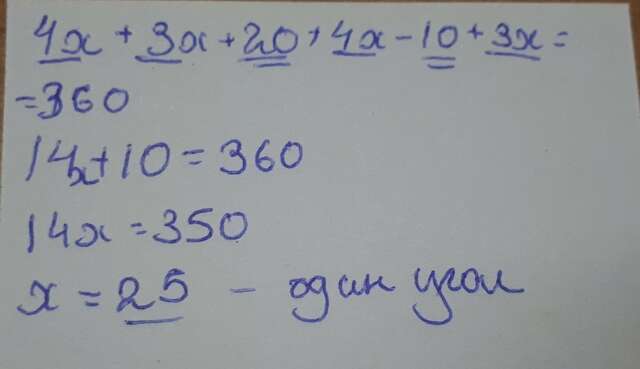 4x + 3x + 20 + 4x - 10 + 3x =
= 360
14x + 10 = 360
14x = 350
x = 25 - один угол